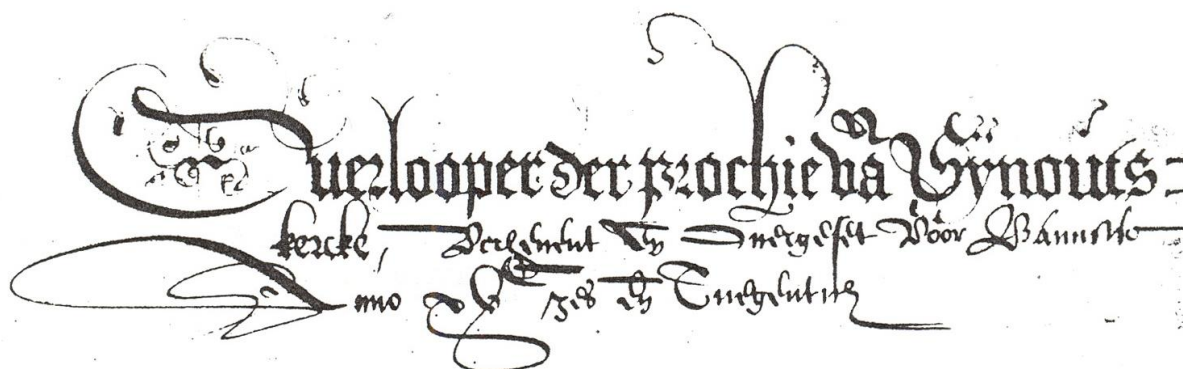 Overlooper der prochie va Wynouts=
kercke, Verhevent en Overgeset voor Bamesse
Anno xvᶜ zes en tnegentich